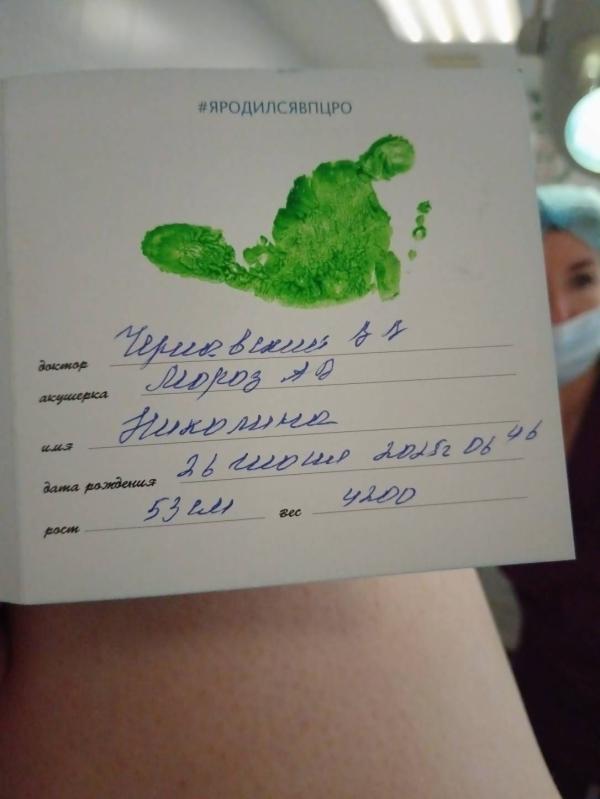 #ЯРОДИЛСЯВПЦРО
доктор Чернавский В В
акушерка Мороз А В
имя Николина
дата рождения 26 июня 2025г 06 46
рост 53 см вес 4200